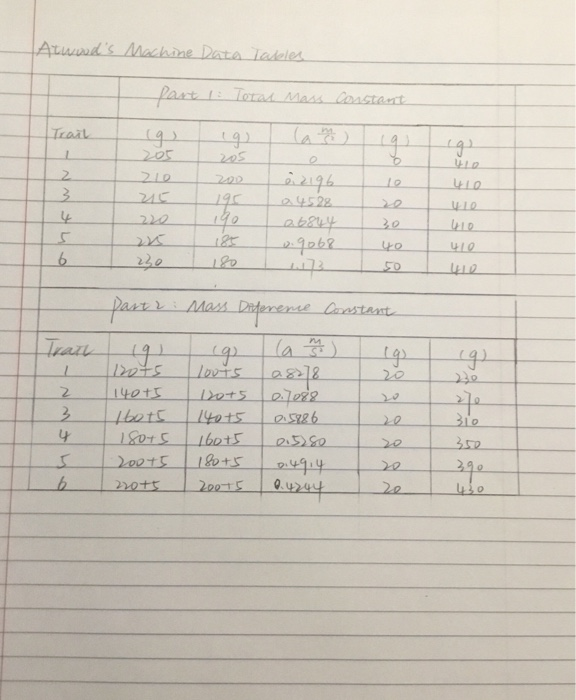 Atwood's Machine Data Tables
Part 1: Total Mass Constant
Trail (g) (g) (a m/s²) (g) (g)
1 205 205 0 0 410
2 210 200 0.2196 10 410
3 215 195 0.4528 20 410
4 220 190 0.6844 30 410
5 225 185 0.9068 40 410
6 230 180 1.173 50 410
Part 2: Mass Difference Constant
Trail (g) (g) (a m/s²) (g) (g)
1 120+5 100+5 0.8278 20 230
2 140+5 120+5 0.7088 20 270
3 160+5 140+5 20 310
4 180+5 160+5 0.5280 20 350
5 200+5 180+5 0.4914 20 390
6 220+5 200+5 0.4244 20 430